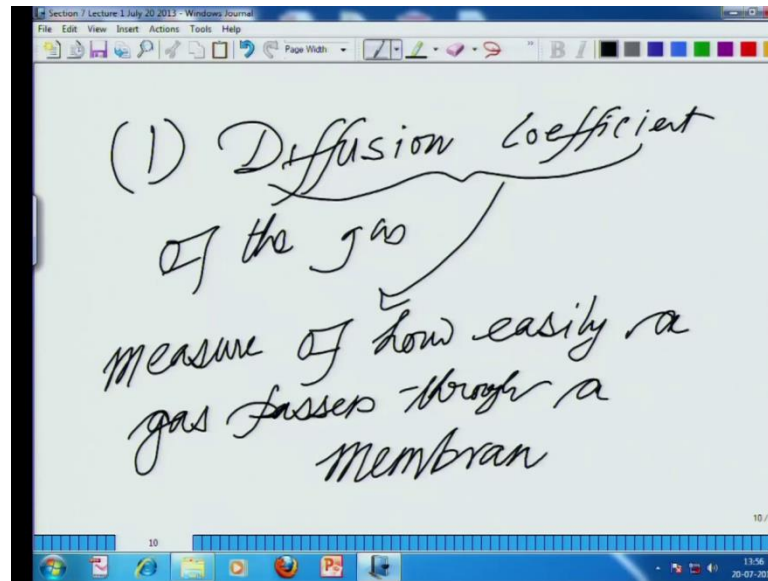 Section 7 Lecture 1 July 20 2013 - Windows Journal
File Edit View Insert Actions Tools Help
Page Width
B I
(1) Diffusion Coefficient
of the gas
measure of how easily a
gas passes through a
membran
10/
10
13:56
20-07-20